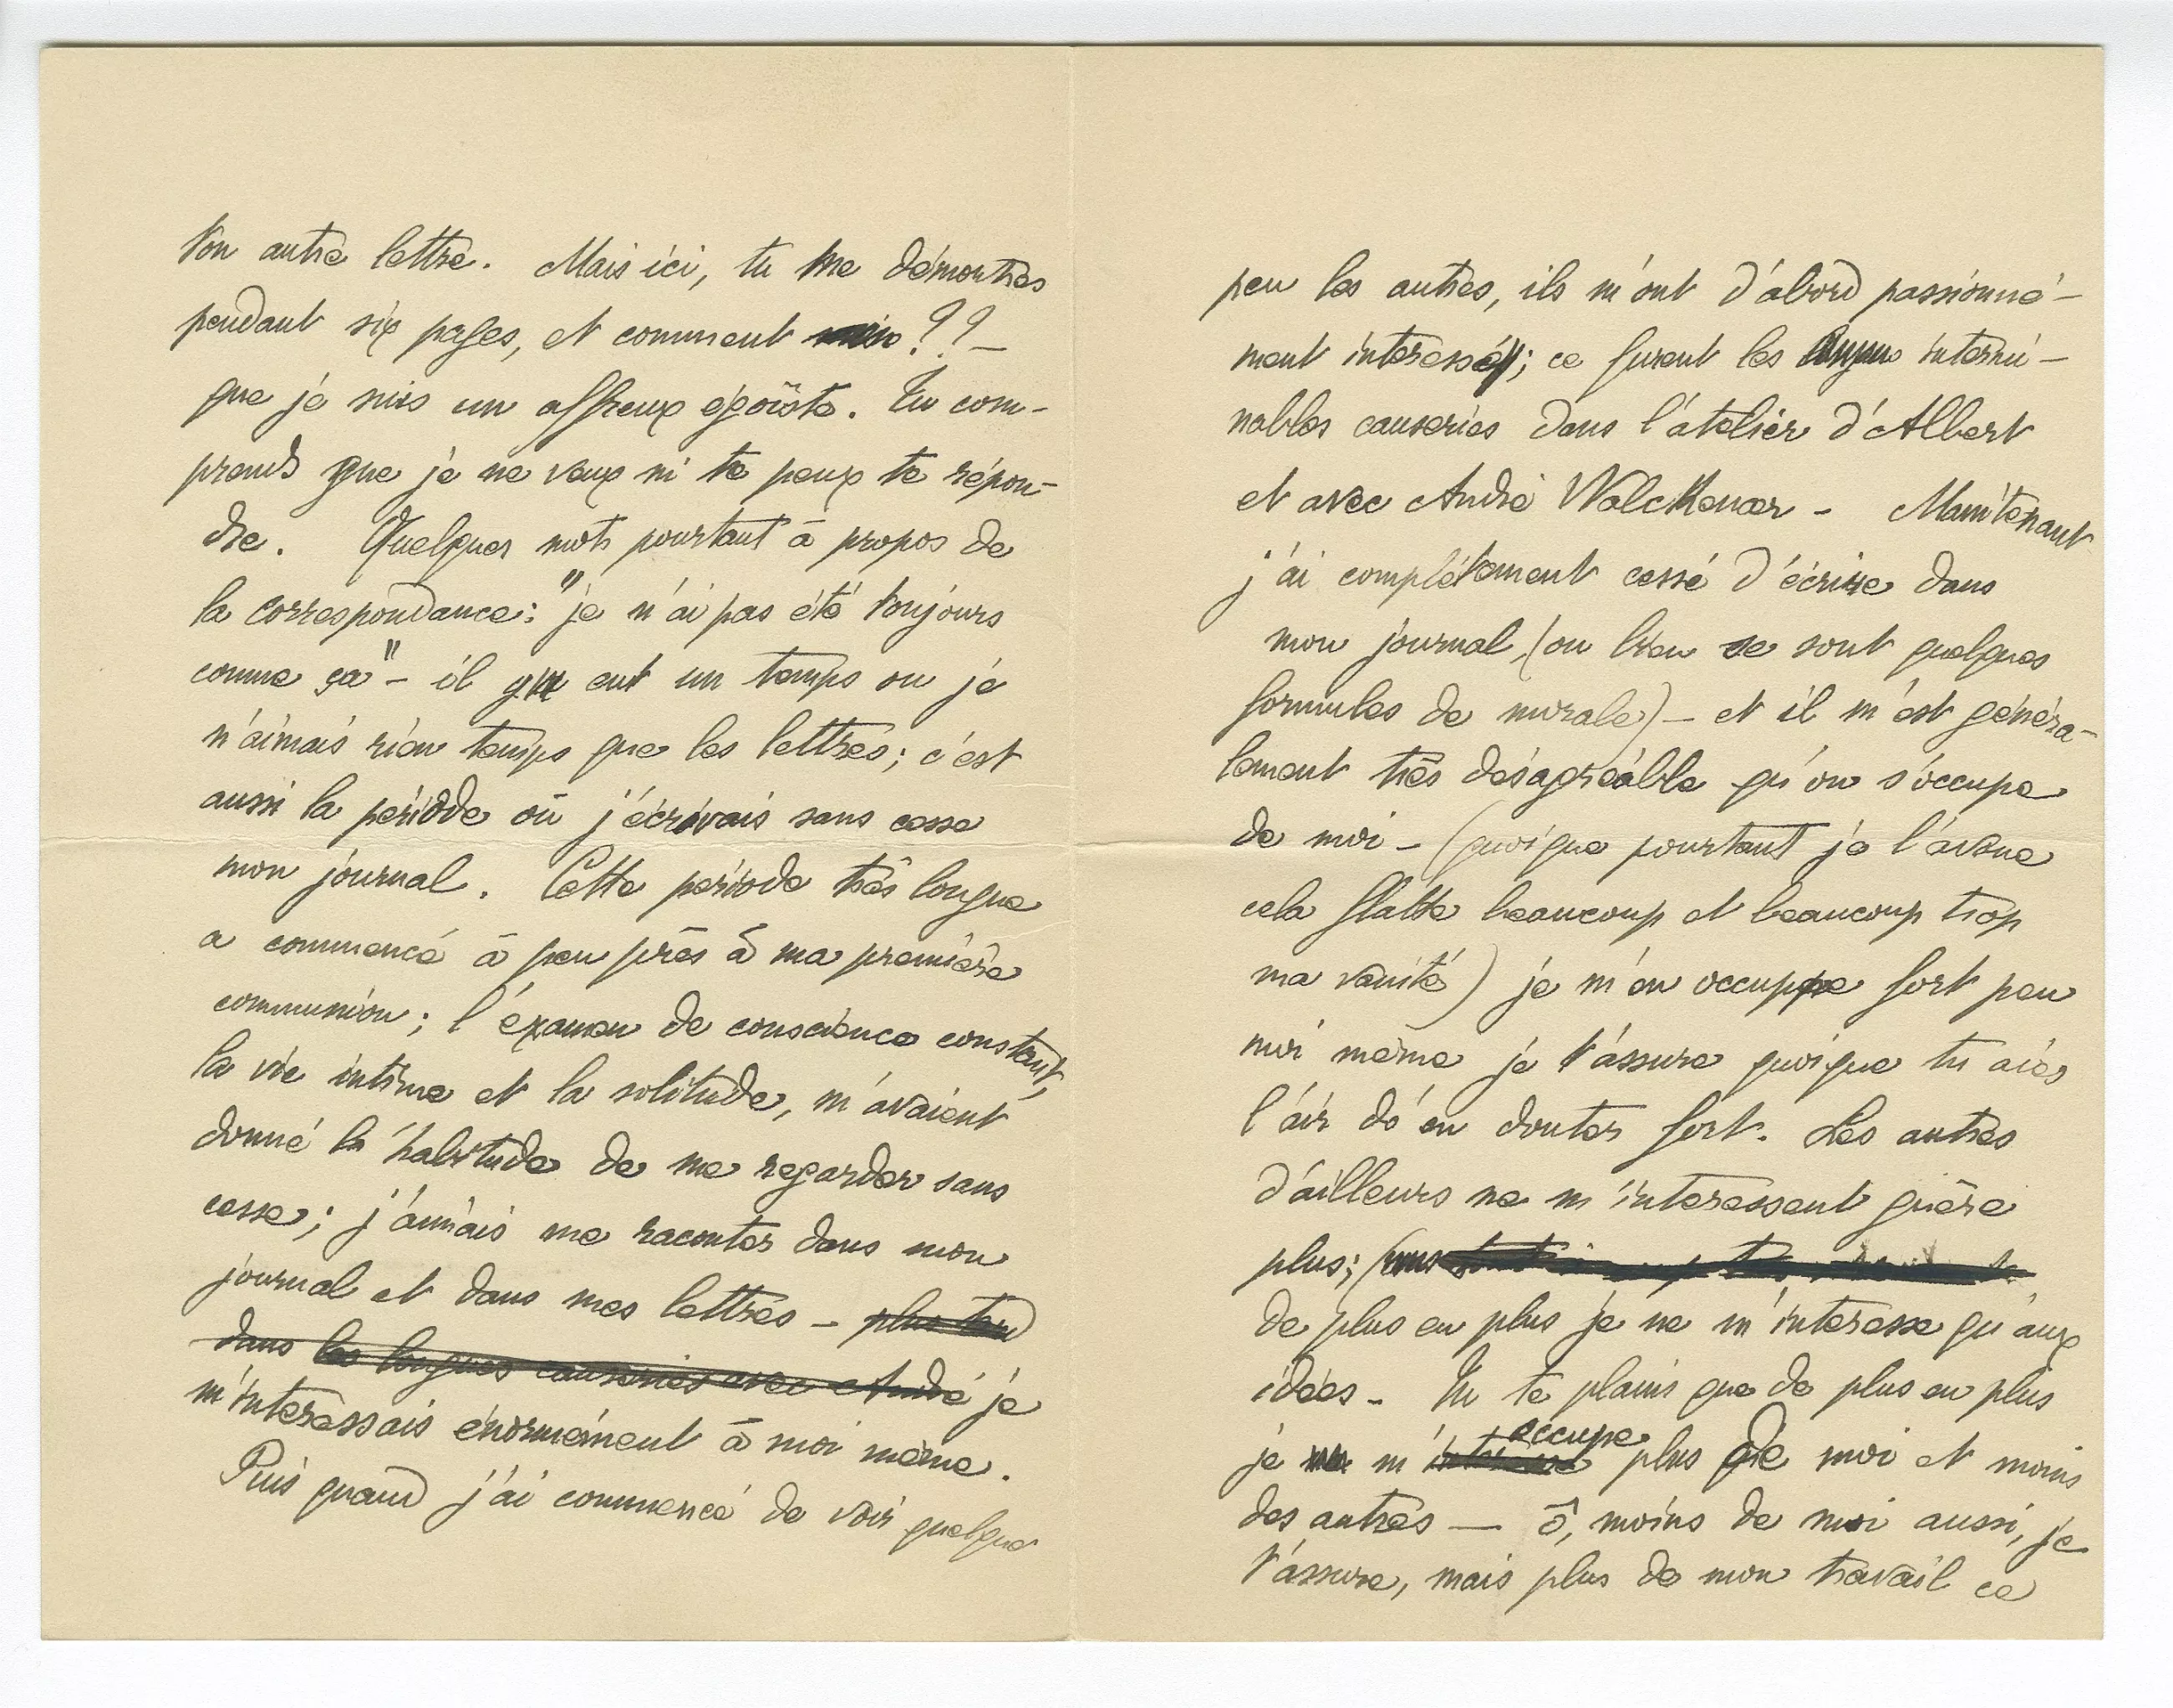 ton autre lettre. Mais ici, tu me démontres
pendant six pages, et comment ??_
que je suis un affreux égoïste. Tu com-
prends que je ne veux ni te peux te répon-
dre. Quelques mots pourtant à propos de
la correspondance: "je n'ai pas été toujours
comme ça" - il y eut un temps ou je
n'aimais rien temps que les lettres; c'est
aussi la période où j'écrivais sans cesse
mon journal. Cette période très longue
a commencé à peu près à ma première
communion; l'examen de conscience constant,
la vie intime et la solitude, m'avaient
donné la habitude de me regarder sans
cesse; j'aimais me raconter dans mon
journal et dans mes lettres - plus tard
dans les longues causeries avec André je
m'interessais énormément à moi même.
Puis quand j'ai commencé de voir quelque
peu les autres, ils m'ont d'abord passionné-
ment interessé; ce furent les intermi-
nables causeries dans l'atelier d'Albert
et avec André Walckenaer - Maintenant
j'ai complétement cessé d'écrire dans
mon journal, (ou bien ce sont quelques
formules de morale) - et il m'est généra-
lement très désagréable qu'on s'occupe
de moi - (quoique pourtant je l'avoue
cela flatte beaucoup et beaucoup trop
ma vanité) je m'en occupe fort peu
moi même je t'assure quoique tu aies
l'air d'en douter fort. Les autres
d'ailleurs ne m'interessent guère
plus;
de plus en plus je ne m'interesse qu'aux
idées - Tu te plains que de plus en plus
je m'interesse occupe plus de moi et moins
des autres — ô, moins de moi aussi, je
t'assure, mais plus de mon travail ce